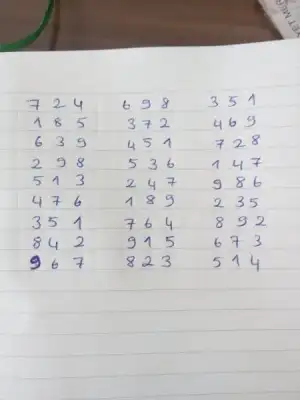 7 2 4 6 9 8 3 5 1
1 8 5 3 7 2 4 6 9
6 3 9 4 5 1 7 2 8
2 9 8 5 3 6 1 4 7
5 1 3 2 4 7 9 8 6
4 7 6 1 8 9 2 3 5
3 5 1 7 6 4 8 9 2
8 4 2 9 1 5 6 7 3
9 6 7 8 2 3 5 1 4